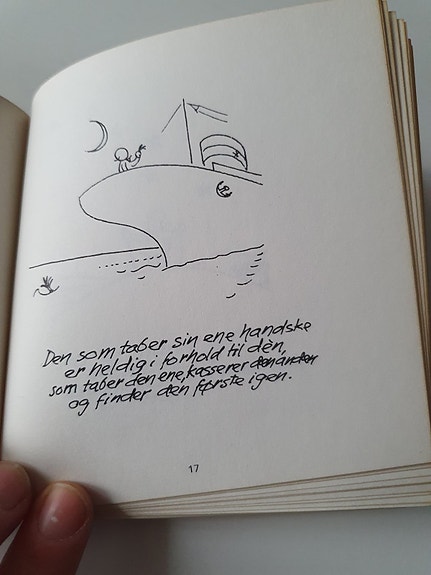 Den som taber sin ene handske
er heldig i forhold til dèn,
som taber den ene, kasserer den anden
og finder den første igen.
17